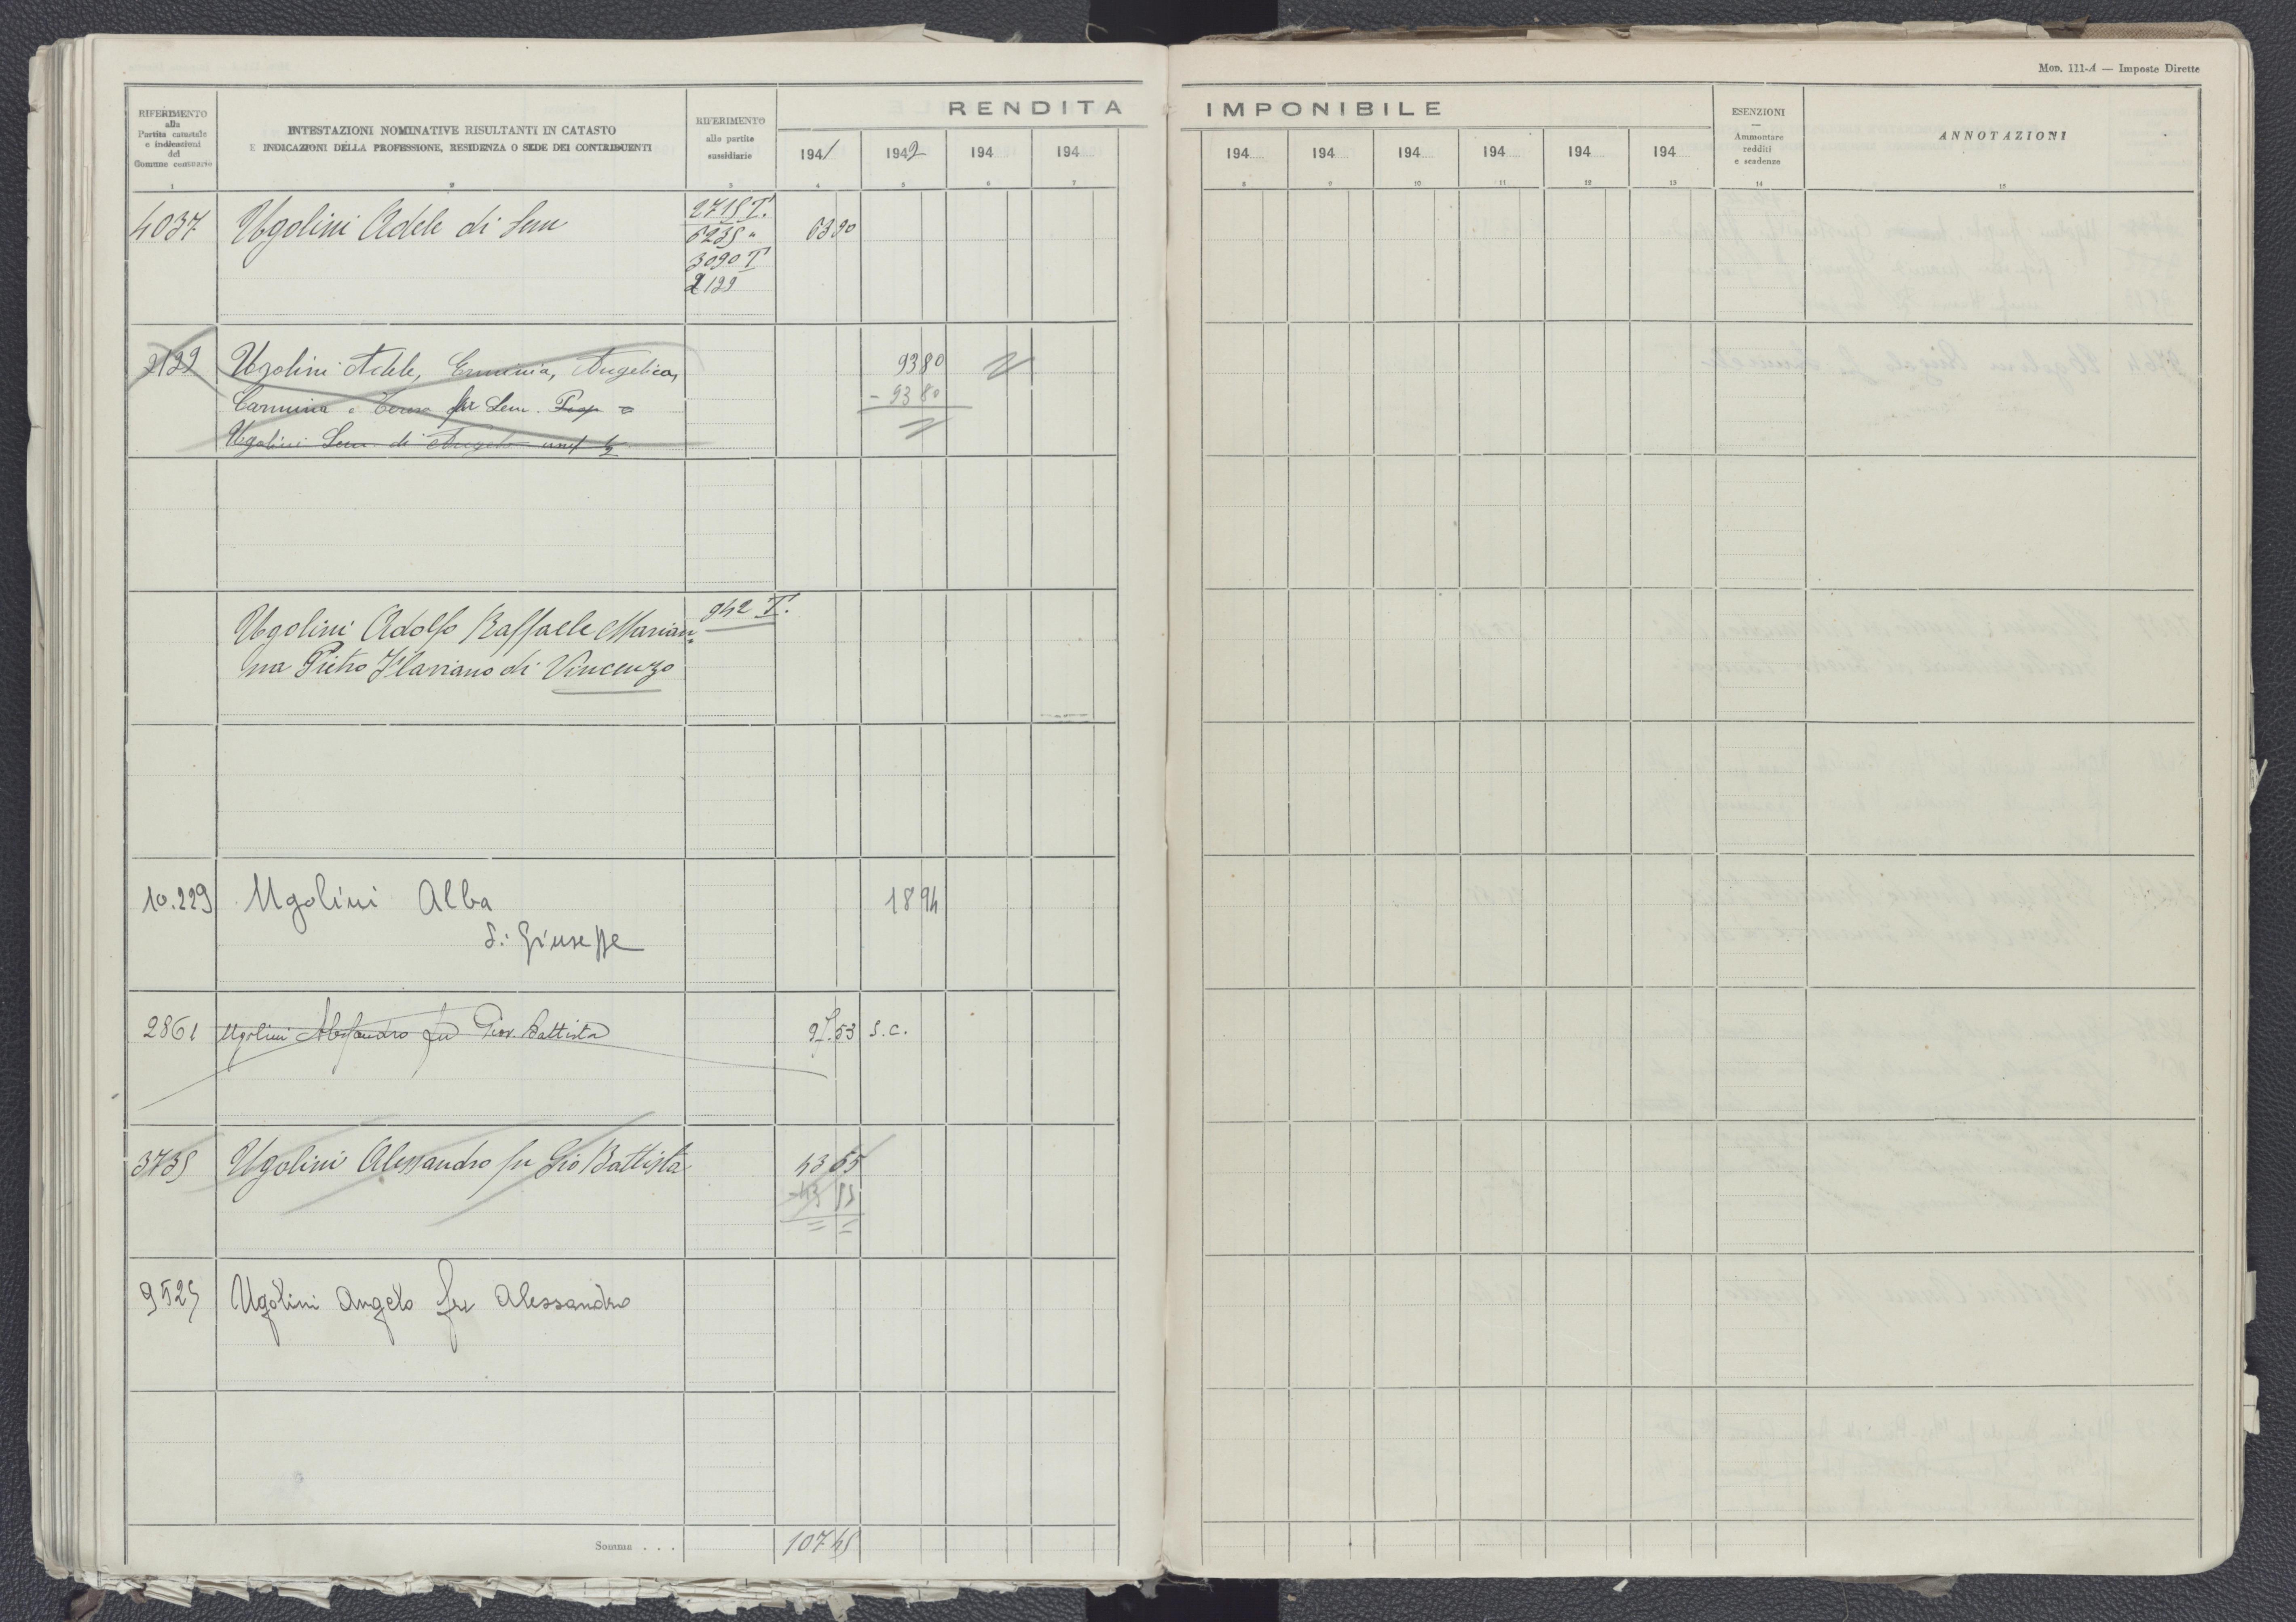 Mod. 111-A — Imposte Dirette
RENDITA IMPONIBILE
RIFERIMENTO
alla
Partita catastale
e indicazioni
del
Comune censuario
INTESTAZIONI NOMINATIVE RISULTANTI IN CATASTO
E INDICAZIONI DELLA PROFESSIONE, RESIDENZA O SEDE DEI CONTRIBUENTI
RIFERIMENTO
alle partite
sussidiarie
1941 1942 194 194 194 194 194 194 194 194
ESENZIONI
—
Ammontare
redditi
e scadenze
ANNOTAZIONI
1 2 3 4 5 6 7 8 9 10 11 12 13 14 15
4037 Ugolini Adele di Sem 2715 T. 6390
6235 "
3090 T
2129
2129 Ugolini Adele, Erminia, Angelica, 9380
Carmina e Teresa fu Sem. Prop e - 9380
Ugolini Sem di Angelo usuf
Ugolini Adolfo Raffaele Marian= 942 T.
na Pietro Flaviano di Vincenzo
10.229 Ugolini Alba 1894
di Giuseppe
2861 Ugolini Alessandro fu Giov. Battista 53 S.C.
3735 Ugolini Alessandro fu Gio Battista 4365
9525 Ugolini Angelo fu Alessandro
Somma . . . 10745